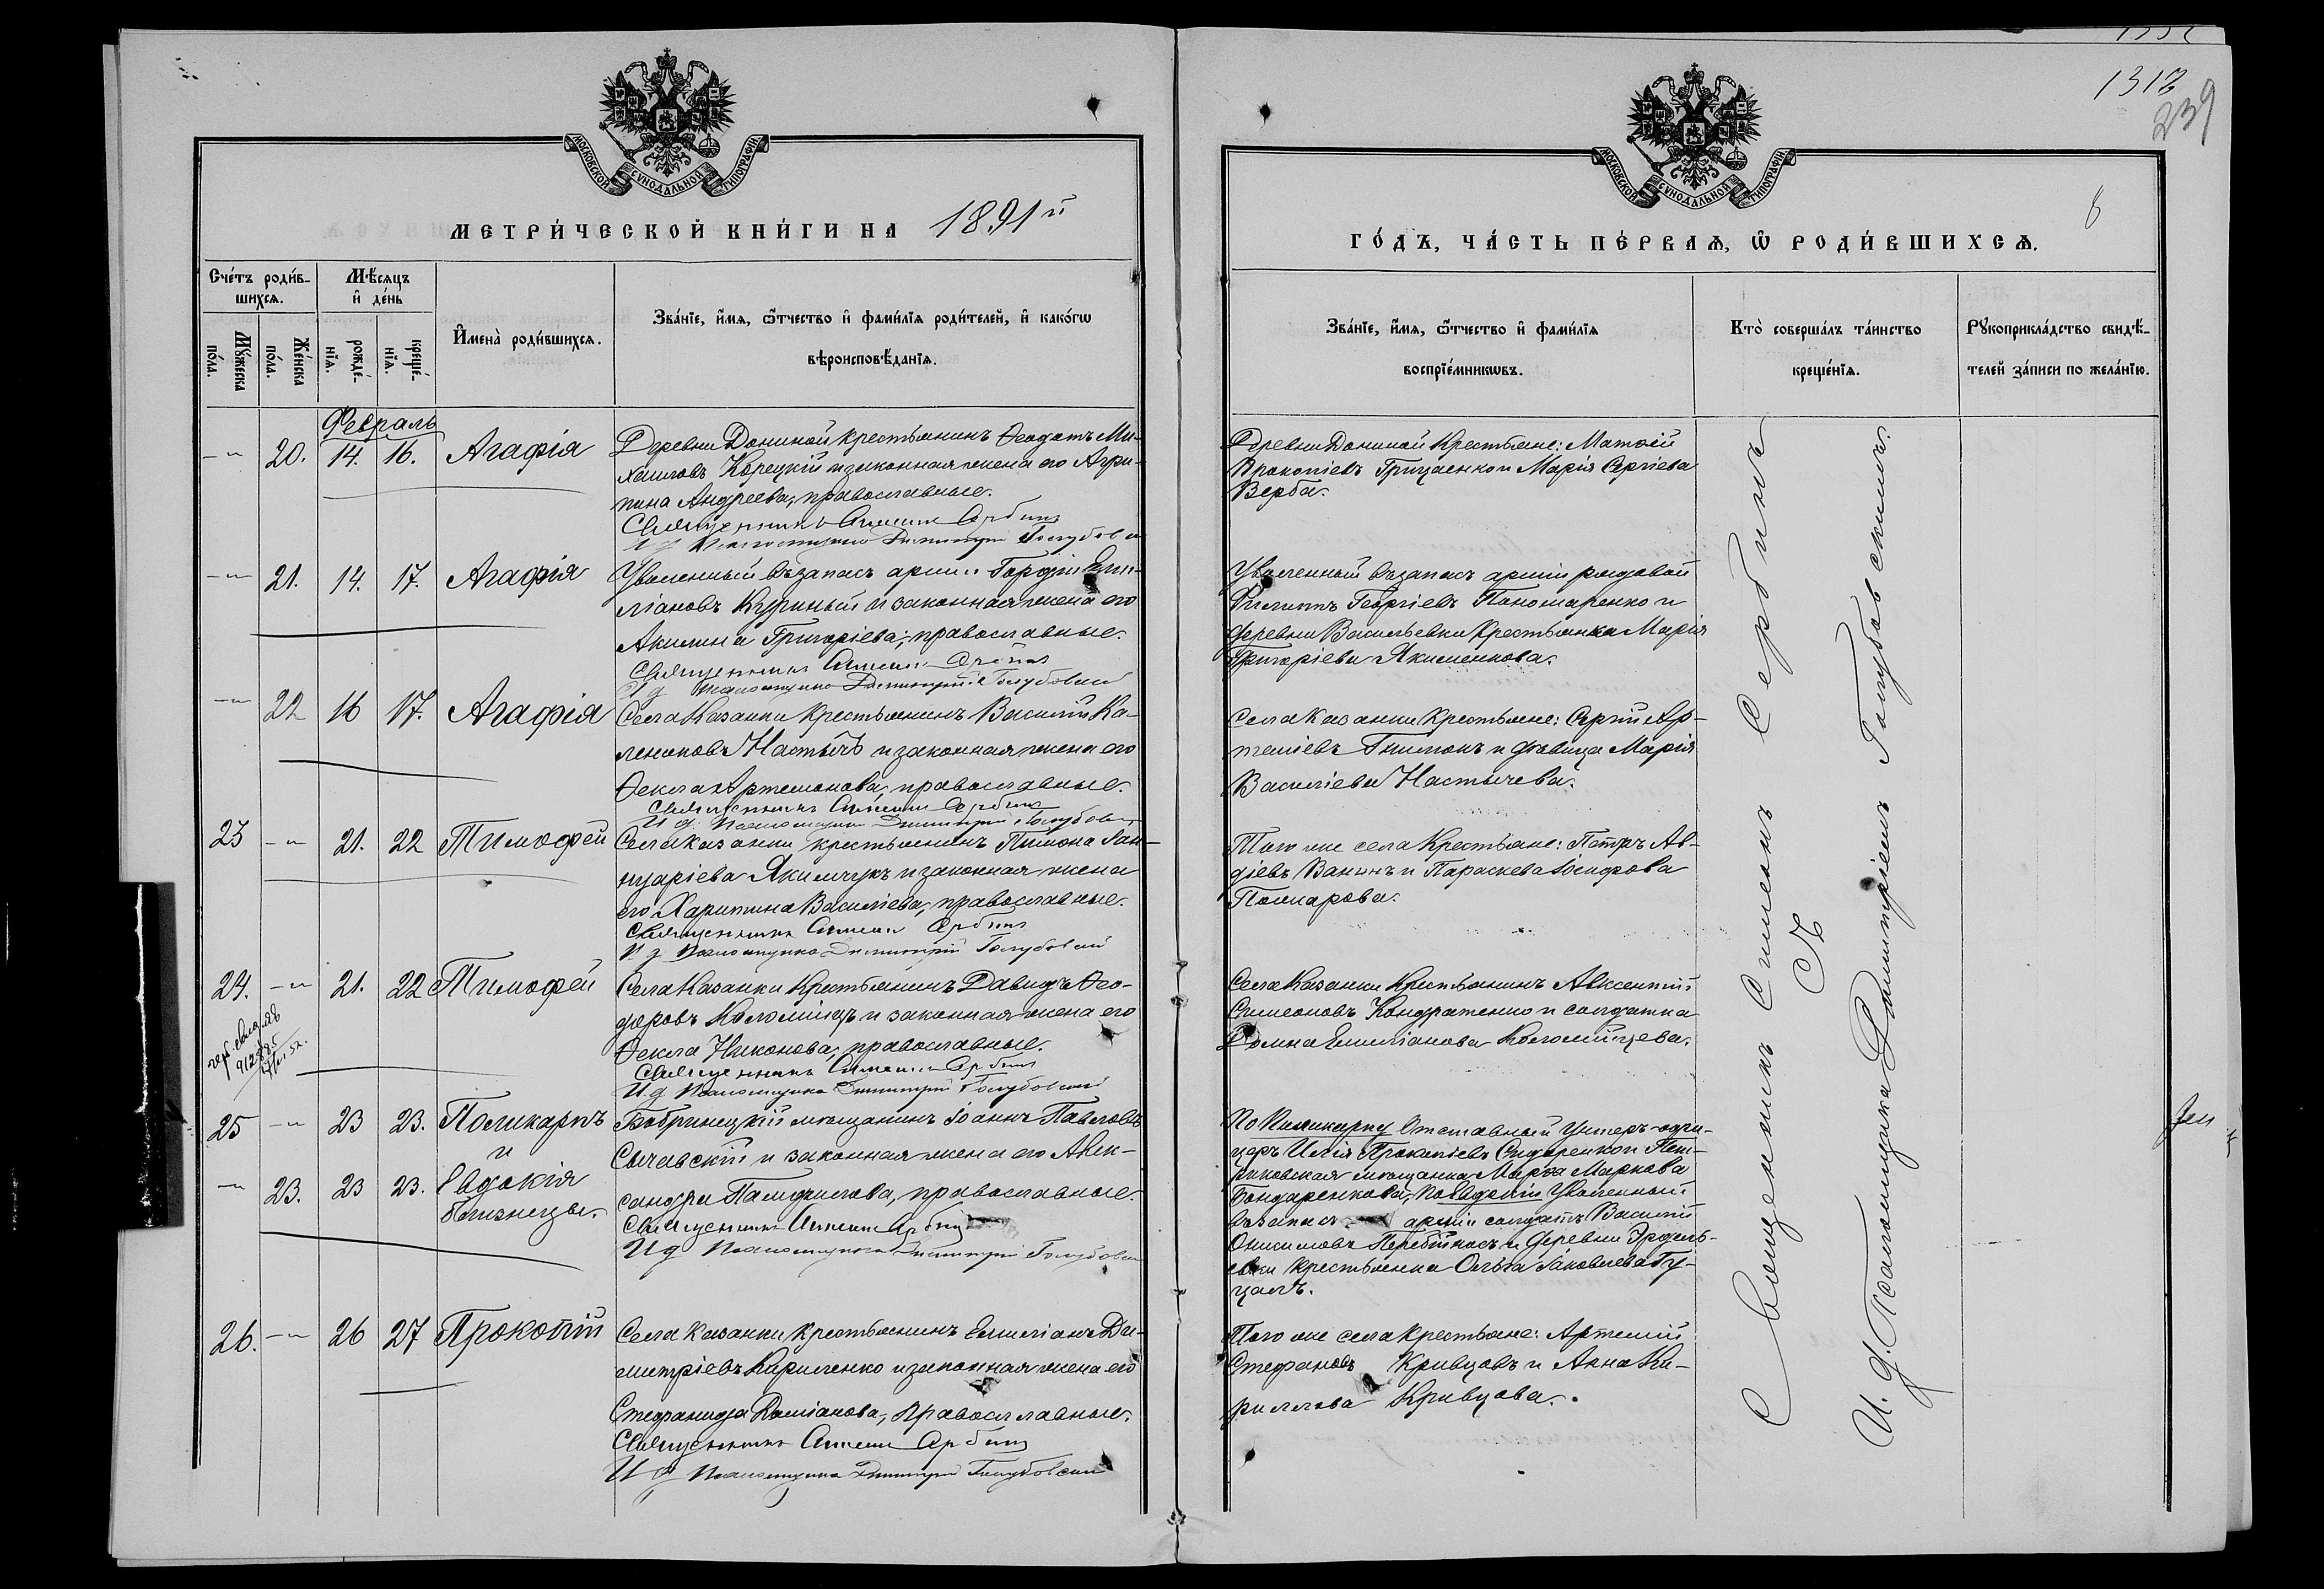 1312
239
6
МОСКОВСКОЙ СѴНОДАЛЬНОЙ ТИПОГРАФІИ.
МОСКОВСКОЙ СѴНОДАЛЬНОЙ ТИПОГРАФІИ.
МЕТРИ́ЧЕСКОЙ КНИ́ГИ НА 1891й
ГО́ДЪ, ЧА́СТЬ ПЕ́РВАѦ, Ѡ҆ РОДИ́ВШИХСѦ.
Сче́тъ роди́в-
шихсѧ.
Мѣ́сѧцъ
и҆ де́нь
Мꙋ́жеска
по́ла.
Же́нска
по́ла.
рожде́-
нїѧ.
креще́-
нїѧ.
И҆мена̀ роди́вшихсѧ.
Зва́нїе, и҆́мѧ, ѻ҆́тчество и҆ фами́лїѧ роди́телей, и҆ како́гѡ
вѣроисповѣ́данїѧ.
Зва́нїе, и҆́мѧ, ѻ҆́тчество и҆ фами́лїѧ
воспрїе́мникѡвъ.
Кто̀ соверша́лъ та́инство
креще́нїѧ.
Рꙋкоприкла́дство свидѣ́-
телей за́писи по жела́нїю.
Февраль
-"- 20. 14. 16. Агафія
Деревни Дониной крестьянинъ Ѳеодотъ Ми-
хаиловъ Корецкій и законная жена его Агри-
пина Андреева, православные.
Священникъ Симеонъ Сербинъ
И д Псаломщика Димитрій Голубовскі
Деревни Дониной Крестьяне: Матѳій
Прокопіевъ Гриценко и Марія Сергіева
Верба.
-"- 21. 14. 17. Агафія
Уволенный въ запасъ арміи Гордій Еми-
ліановъ Куриный и законная жена его
Акилина Григоріева, православные.
Священникъ Симеонъ Сербинъ
И д Псаломщика Димитрій Голубовскій
Уволенный въ запасъ арміи рядовой
Филиппъ Георгіевъ Пономаренко и
деревни Васильевки Крестьянка Марія
Григоріева Якименкова.
-"- 22 16 17. Агафія
Села Казанки Крестьянинъ Василій Ка-
лениковъ Настычъ и законная жена его
Ѳекла Артемонова, православные.
Священникъ Симеонъ Сербинъ
И д. Псаломщика Димитрій Голубовскі
Села Казанки Крестьяне: Сергій Ар-
теміевъ Гнилюкъ и дѣвица Марія
Василіева Настычева.
23 -"- 21. 22 Тимофей
Села Казанки крестьянинъ Пимона Іан-
нуаріева Якимчукъ и законная жена
его Харитина Василіева, православные.
Священникъ Симеонъ Сербинъ
И д Псаломщика Димитрій Голубовскій
Того же села Крестьяне: Петръ Ав-
діевъ Ванинъ и Параскева Іосифова
24. -"- 21. 22 Тимофей
Села Казанки Крестьянинъ Давидъ Ѳео-
доровъ Коломіецъ и законная жена его
Ѳекла Никонова, православные.
Священникъ Симеонъ Сербинъ
И. д Псаломщика Димитрій Голубовскій
Села Казанки Крестьянинъ Авксентій
Симеоновъ Кондратенко и солдатка
Домна Емиліанова Коломійцева.
25 -"- 23 23. Поликарпъ
и
-"- 23. 23 23. Евдокія
близнецы.
Бобринецкій мѣщанинъ Іоаннъ Павловъ
Сычавскій и законная жена его Алек-
сандра Памфилова, православные.
Священникъ Симеонъ Сербинъ
И д Псаломщика Димитрій Голубовскі
По Поликарпу Отставный Унтеръ-офи-
церъ Илія Прокопіевъ Сидоренко и Пет-
риковская мѣщанка Марѳа Маркова
Бондаренкова, по Евдокіи Уволенный
въ запасъ арміи солдатъ Василій
Онисимовъ Перебійносъ и деревни Эрдель-
евки Крестьянка Ольга Іаковлева Гу-
цалъ.
26. -"- 26 27 Прокопій
Села Казанки Крестьянинъ Емиліанъ Ди-
митріевъ Кириленко и законная жена его
Стефанида Даміанова, православные.
Священникъ Симеонъ Сербинъ
И д Псаломщика Димитрій Голубовскій
Того же села Крестьяне: Артемій
Стефановъ Кривцовъ и Анна Ки-
риллова Кривцова.
Священникъ Симеонъ Сербинъ
Съ
И. д. Псаломщика Димитріемъ Голубовскимъ.